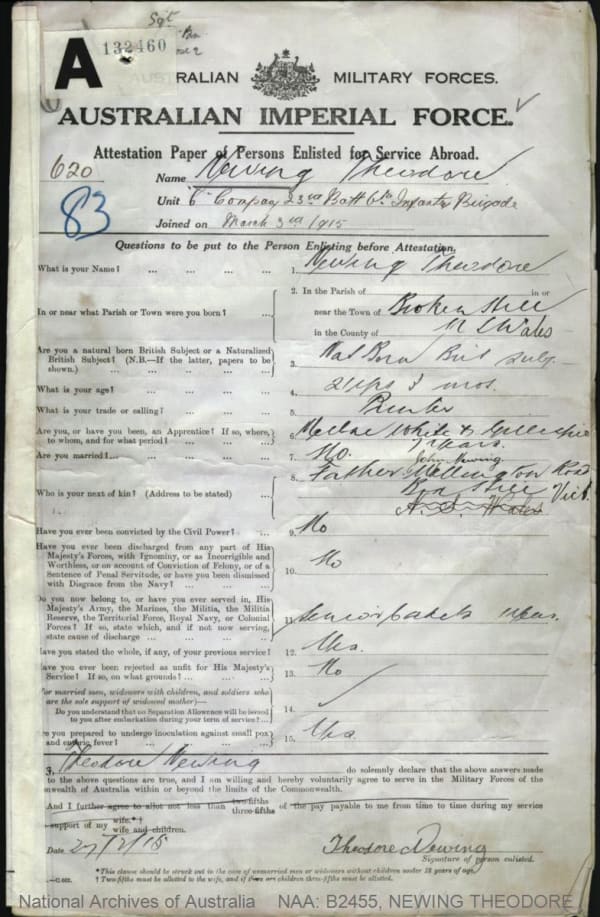 Sgt
A
132460
AUSTRALIAN MILITARY FORCES.
AUSTRALIAN IMPERIAL FORCE.
Attestation Paper of Persons Enlisted for Service Abroad.
620
Name Newing Theodore
83
Unit C Company 23rd Batt 6th Infantry Brigade
Joined on March 3rd 1915
Questions to be put to the Person Enlisting before Attestation.
What is your Name? ... ... ... ... 1. Newing Theodore
2. In the Parish of in or
In or near what Parish or Town were you born? ... near the Town of Broken Hill
in the County of N S Wales
Are you a natural born British Subject or a Naturalized
British Subject? (N.B.—If the latter, papers to be
shown.) ... ... ... ... 3. Nat Born Brit Subj
What is your age? ... ... ... ... 4. 21 yrs 3 mos.
What is your trade or calling? ... ... ... 5. Printer
Are you, or have you been, an Apprentice? If so, where,
to whom, and for what period? ... ... ... 6. White & Gillespie
7 years.
Are you married? ... ... ... ... 7. No.
John Newing
8. Father Road
Who is your next of kin? (Address to be stated) ... Box Hill Vict.
N. S. Wales
Have you ever been convicted by the Civil Power? ... 9. No
Have you ever been discharged from any part of His
Majesty's Forces, with Ignominy, or as Incorrigible and
Worthless, or on account of Conviction of Felony, or of a
Sentence of Penal Servitude, or have you been dismissed
with Disgrace from the Navy? ... ... 10. No
Do you now belong to, or have you ever served in, His
Majesty's Army, the Marines, the Militia, the Militia
Reserve, the Territorial Force, Royal Navy, or Colonial
Forces? If so, state which, and if not now serving,
state cause of discharge ... ... ... 11. Senior Cadets
Have you stated the whole, if any, of your previous service? 12. Yes.
Have you ever been rejected as unfit for His Majesty's
Service? If so, on what grounds? ... ... 13. No
For married men, widowers with children, and soldiers who
are the sole support of widowed mother)—
Do you understand that no Separation Allowance will be issued
to you after embarkation during your term of service? ... 14.
Are you prepared to undergo inoculation against small pox
and enteric fever? ... ... ... 15. Yes.
I, Theodore Newing do solemnly declare that the above answers made
to the above questions are true, and I am willing and hereby voluntarily agree to serve in the Military Forces of the
Commonwealth of Australia within or beyond the limits of the Commonwealth.
*And I further agree to allot not less than two-fifths
three-fifths of the pay payable to me from time to time during my service
support of my wife.*†
wife and children.
Date 27/2/15
Theodore Newing
Signature of person enlisted.
*This clause should be struck out in the case of unmarried men or widowers without children under 18 years of age.
† Two-fifths must be allotted to the wife, and if there are children three-fifths must be allotted.
National Archives of Australia NAA: B2455, NEWING THEODORE